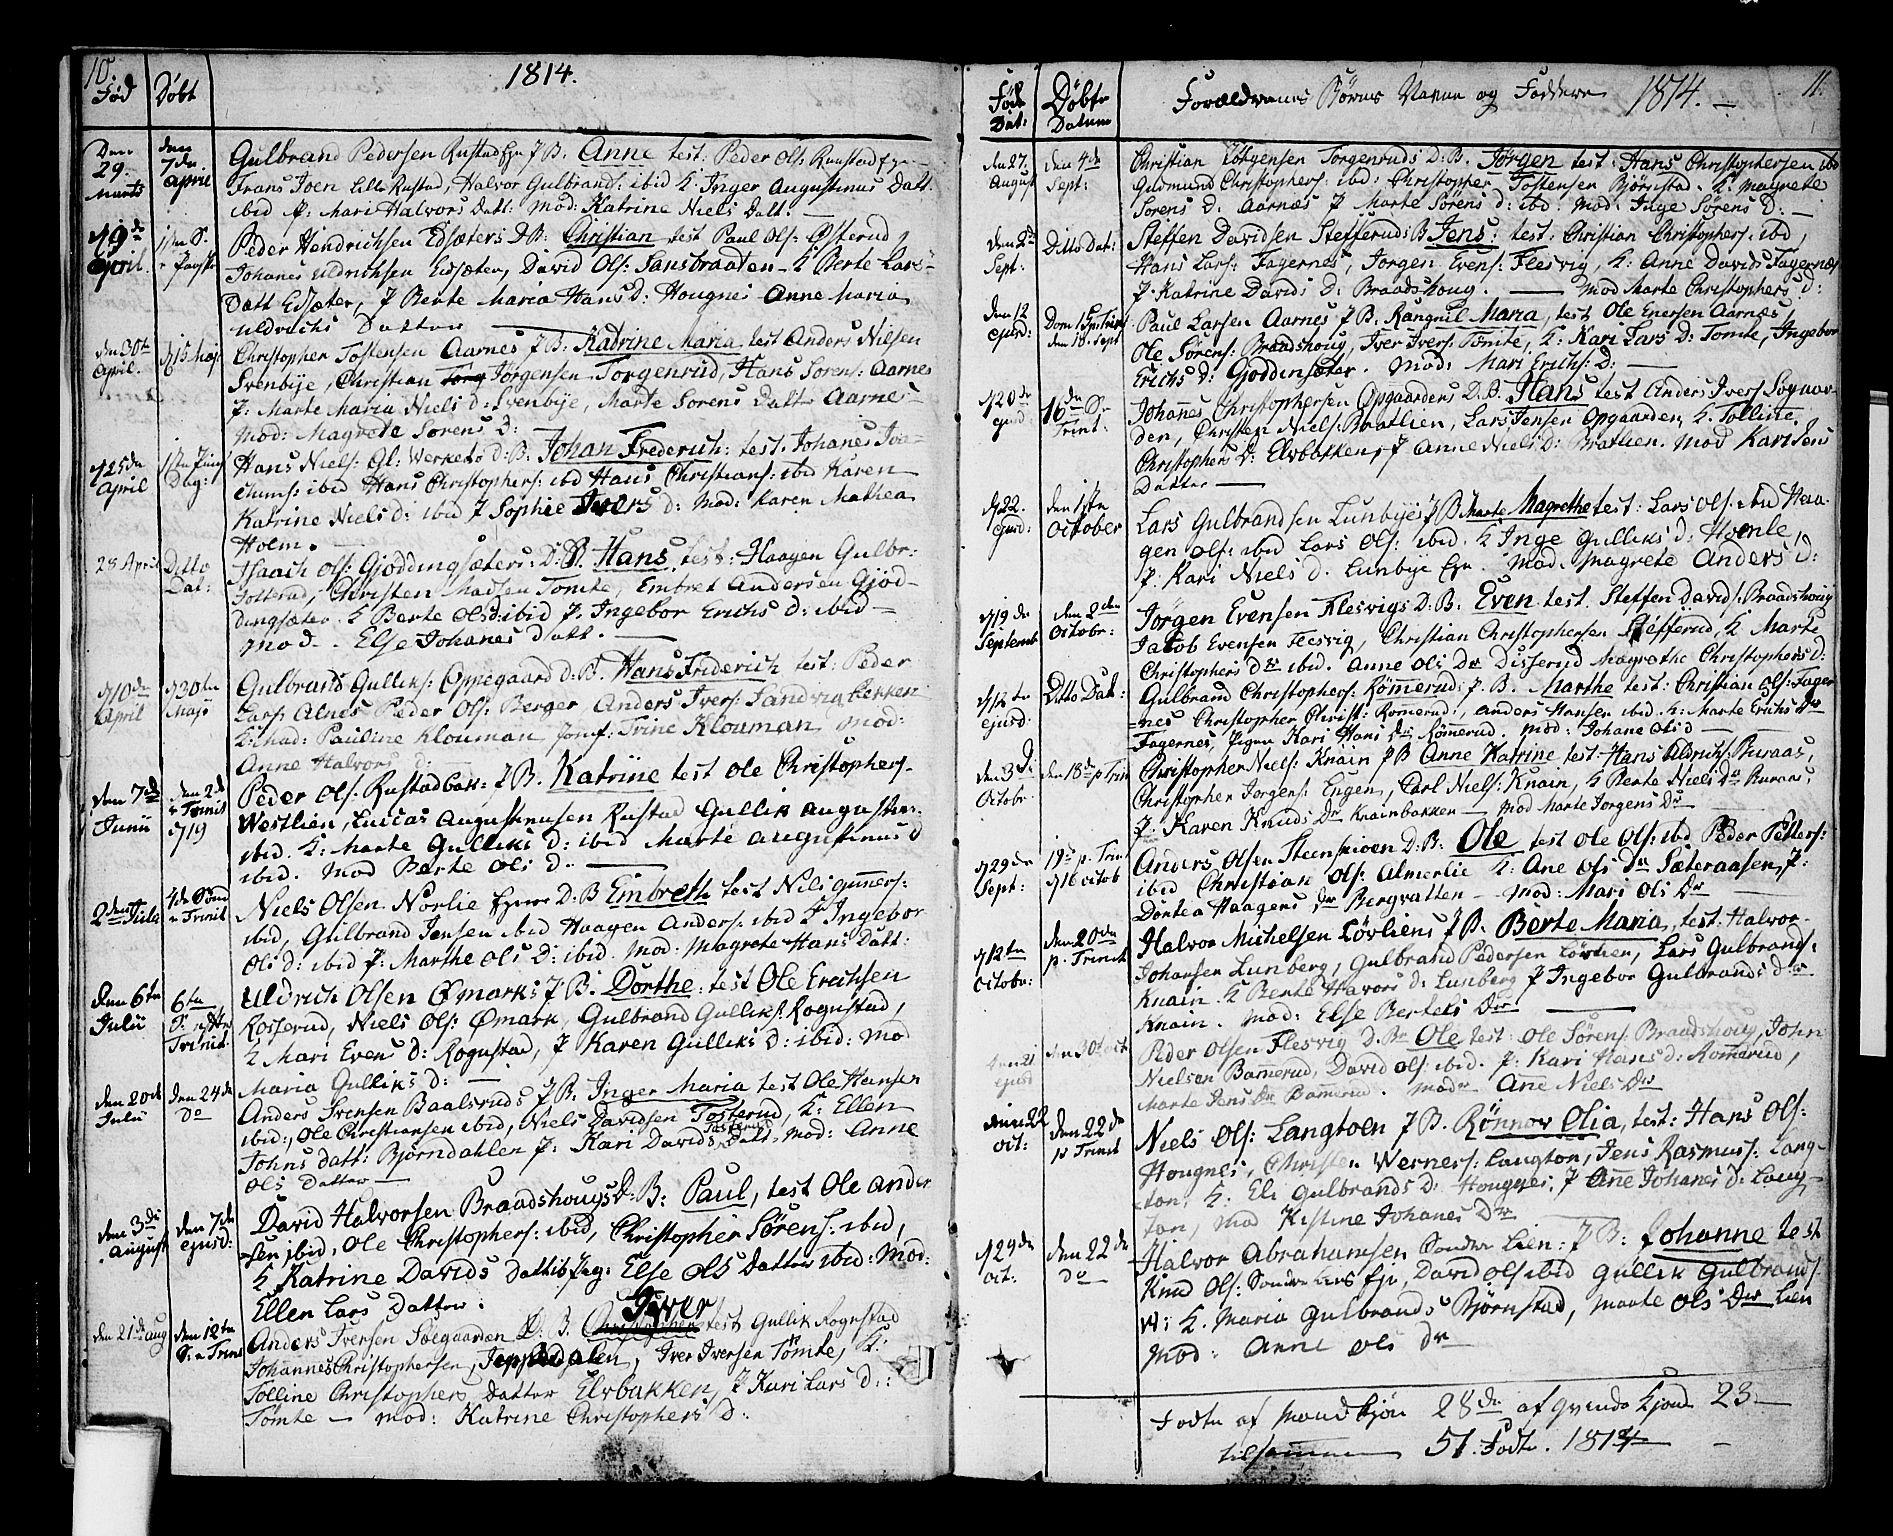 10.
1814.
Fød Døbt
Den 29. marts
den 7de April
Gulbrand Pedersen Rustad Eyn P B. Anne test: Peder Ols: Rustad Eyn
Frans Joen Lille Rustad, Halvor Gulbrands: ibid K. Inger Augustinus Datt.
ibid P: Mari Halvors Datt: Mod: Katrine Niels Datt.
19de April.
Peder Hendrichsen Edsæters D B: Christian test Paul Ols: Østerud
Johanes Uldrichsen Edsæter, David Ols: Sansbraaten K Berte Lars
Datt Edsæter, P Berte Maria Hans D: Hougnes Anne Maria
Uldrichs Datter
den 30te April.
d 15 Maj
Christopher Tostensen Aarnes P B. Katrine Maria, test Anders Nielsen
Svenbye, Christian Jørgensen Torgenrud, Hans Sørens: Aarnes
P: Marte Maria Niels d: Svenbye, Marte Sørens Datt Aarnes
Mod: Magrete Sørens D:
d 25de April
Hans Niels: Gl: Werkets D: B. Johan Frederich: test: Johanes Joa-
chims: ibid Hans Christophers: ibid Hans Christians: ibid Karen
Katrine Niels D: ibid P Sophie Ivers d: Mod: Karen Mathea
Holm.
28 April
Ditto Dat:
Isaach Ols: Gjødding sæters: D: B. Hans, test: Haagen Gulbr:
Tosterud, Christen Madsen Tomte, Embret Andersen Gjød-
dingsæter. K Berte Ols d: ibid P. Ingebor Erichs d: ibid
Mod. Else Johanes Datt.
d 10de April
d 30te Maji
Gulbrand Gulliks: Oppegaard D: B. Hans Friderich test: Peder
Lars Alnes Peder Ols: Berger Anders Ivers: Sandvig bekken
K: Mad: Pauline Klouman Jomf: Trine Klouman Mod:
Anne Halvors d:
den 7de Junii
den 2de Trinit d 19
Peder Ols: Rustadbak: P B. Katrine test Ole Christophers-
Westlien, Lucas Augustinusen Rustad Gullik Augustin:
ibid. K: Marte Gulliks D: ibid Marte Augustinus d
ibid. Mod Berte Ols D:
4de Sønd Trinit
Niels Olsen Norlie Eyer D: B Embreth test Nils Gunners:
ibid, Gulbrand Jensen ibid Haagen Anders: ibid K Ingebor
Ols d: ibid P: Marthe Ols D: ibid. Mod: Magrete Hans Datt:
Den 6te Julii
6te Trinit.
Uldrich Olsen Ømarks P B: Dorthe: test Ole Erichsen
Rosserud, Niels Ols: Ømark, Gulbrand Gulliks: Rognstad,
K Mari Evens D: Rognstad, P Karen Gulliks D: ibid: Mod
Maria Gulliks d:
Den 20de Julii
Den 24de Do
Anders Svensen Baalsruds P B: Inger Maria test Ole Hansen
ibid:, Ole Christiansen ibid, Niels Davidsen Tosterud, K: Ellen
Johns datt: Bjørndahlen P: Kari Davids Datt: Mod: Anne
Ols Datter
den 3de August
den 7de ejusd:
David Halvorsen Braadshougs D: B: Paul, test Ole Ander
sen ibid, Ole Christophers: ibid, Christopher Sørens: ibid,
K Katrine Davids Datt ib Pag: Else Ols Datter ibid: Mod:
Ellen Lars Datter:
den 21de aug
den 12te S: Trin
Iver
Anders Iversen Søegaarden D: B. Christopher test Gullik Rognstad
Johannes Christophersen, Jeppedalen, Iver Iversen Tømte, K:
Tolline Christophers Datter Elvbakken, P Kari Lars D:
Tømte — Mod: Katrine Christophers d:
11.
Født Dat: Døbte Datum
Forældrenes Børns Navne og Faddere 1814.
den 27. August
den 4de Sept:
Christian Jørgensen Torgenruds D: B. Jørgen test: Hans Christophersen ibd
Gudmund Christophers: ibid: Christopher Tostensen Bjørnstad. K: Magrete
Sørens D: Aarnæs P Marte Sørens d: ibd: Mod: Inge Sørens D:
Sept:
Ditto Dat:
Steffen Davidsen Stefferuds B Jens: test: Christian Christophers: ibd,
Hans Lars: Fagernes, Jørgen Evens: Flesvig, K: Anne Davids Fagernæs
P: Katrine Davids D: Braadshoug. — Mod Marte Christophers D:
den 12 ejusd:
den 18. Sept
Paul Larsen Aarnes P B. Rangnil Maria, test Ole Enersen Aarnæs,
Ole Sørens: Braadshoug, Iver Ivers: Tømte, K: Kari Lars D: Tomte, Ingebor
Erichs d: Gjøddensæter. Mod: Mari Erichs: D:
d 20de ejusd
16de S. Trint:
Johannes Christophersen Opgaarders D. B. Hans test Anders Ivers Sognor-
den, Christen Niels: Braatlien, Lars Jensen Opgaarden K Tolline
Christophers D: Elvbakken, P Anne Niels D: Bratlien. Mod Kari Jens
Datter
d 22. ejusd:
den 1ste October
Lars Gulbrandsen Lunbyes P B Marte Magrethe test: Lars Ols: ibid Haa-
gen Ols: ibid Lars Ols: ibid. K Inge Gulliks d: Hoenle
P. Kari Niels d. Lunbye Eyn Mod. Magrete Anders D:
d 19de Septemb
den 2den Octobr:
Jørgen Evensen Flesvigs D. B. Even test. Steffen Davids: Braadshoug
Jacob Evensen Flesvig, Christian Christophersen Stefferud, K Marte
Christophers Dr ibid. Anne Ols Dr Disserud Magrethe Christophers D:
ejusd.
Ditto Dat:
Gulbrand Christophers: Rømmerud: P. B. Marthe test: Christian Ols: Fager
nes Christopher Christ: Romerud:, Anders Hansen ibid K: Marte Erichs Dr
Fagernes, Pigen Kari Hans Dr: Rømerud. Mod: Johane Ols D
den 3d: Octobr
den 18de p Trin
Christopher Niels: Knain P B Anne Katrine test Hans Uldrichs: Buraas,
Christopher Jørgens: Eugen, Carl Niels: Knain, K Berte Niels Dr Buraas,
P. Karen Knuds Dr Knainbakken — Mod Marte Jørgens Dr
d 29de Sept:
19de p. Trin d 16 Octob
Anders Olsen Steenskioen D: B: Ole test Ole Ols: ibd Peder Petters:
ibid Christian Ols: Almerlie K: Ane Ols Dr Sæteraasen, P:
Dortea Haagens Dr Bergvatten — Mod: Mari Ols Dr
d 12te Octobr:
den 20de p. Trinit
Halvor Michelsen Løvliens P B. Berte Maria, test: Halvor
Johansen Lunberg, Gulbrand Pedersen Løvlien, Lars Gulbrands:
Knain K Berte Havors d: Lunberg P Ingebor Gulbrands Dr
Knain. Mod: Else Bertels Dr
ejusd
Peder Olsen Flesvig D. B: Ole test: Ole Sørens: Braadshoug, John
Nielsen Bamerud, David Ols: ibid. P: Kari Hans d: Romerud,
Marte Jens Dr Bammerud. Modr Ane Niels Dr
Oct:
den 22de p Trinit
Niels Ols: Langtoen P B. Rønnov Olia, test: Hans Ols:
Hougnes, Christen Werners: Langton, Jens Rasmus: Lang-
ton, K: Eli Gulbrands D: Hougnes, P Ane Johanes d: Lang-
ton, Mod Kistine Johanes Dr
d 29de Oct:
den 22de do
Halvor Abrahamsen Sondre Lien: P B: Johanne test
Knud Ols: Søndre Lies Eje, David Ols ibid Gullik Gulbrands
K. Maria Gulbrands Bjørnstad, Marte Ols Dr Lien
Mod: Anne Ols Dr
Fødte af Mandkjøn 28de af Qvinde Kjønd 23
tilsammen 51. Fødte. 1814